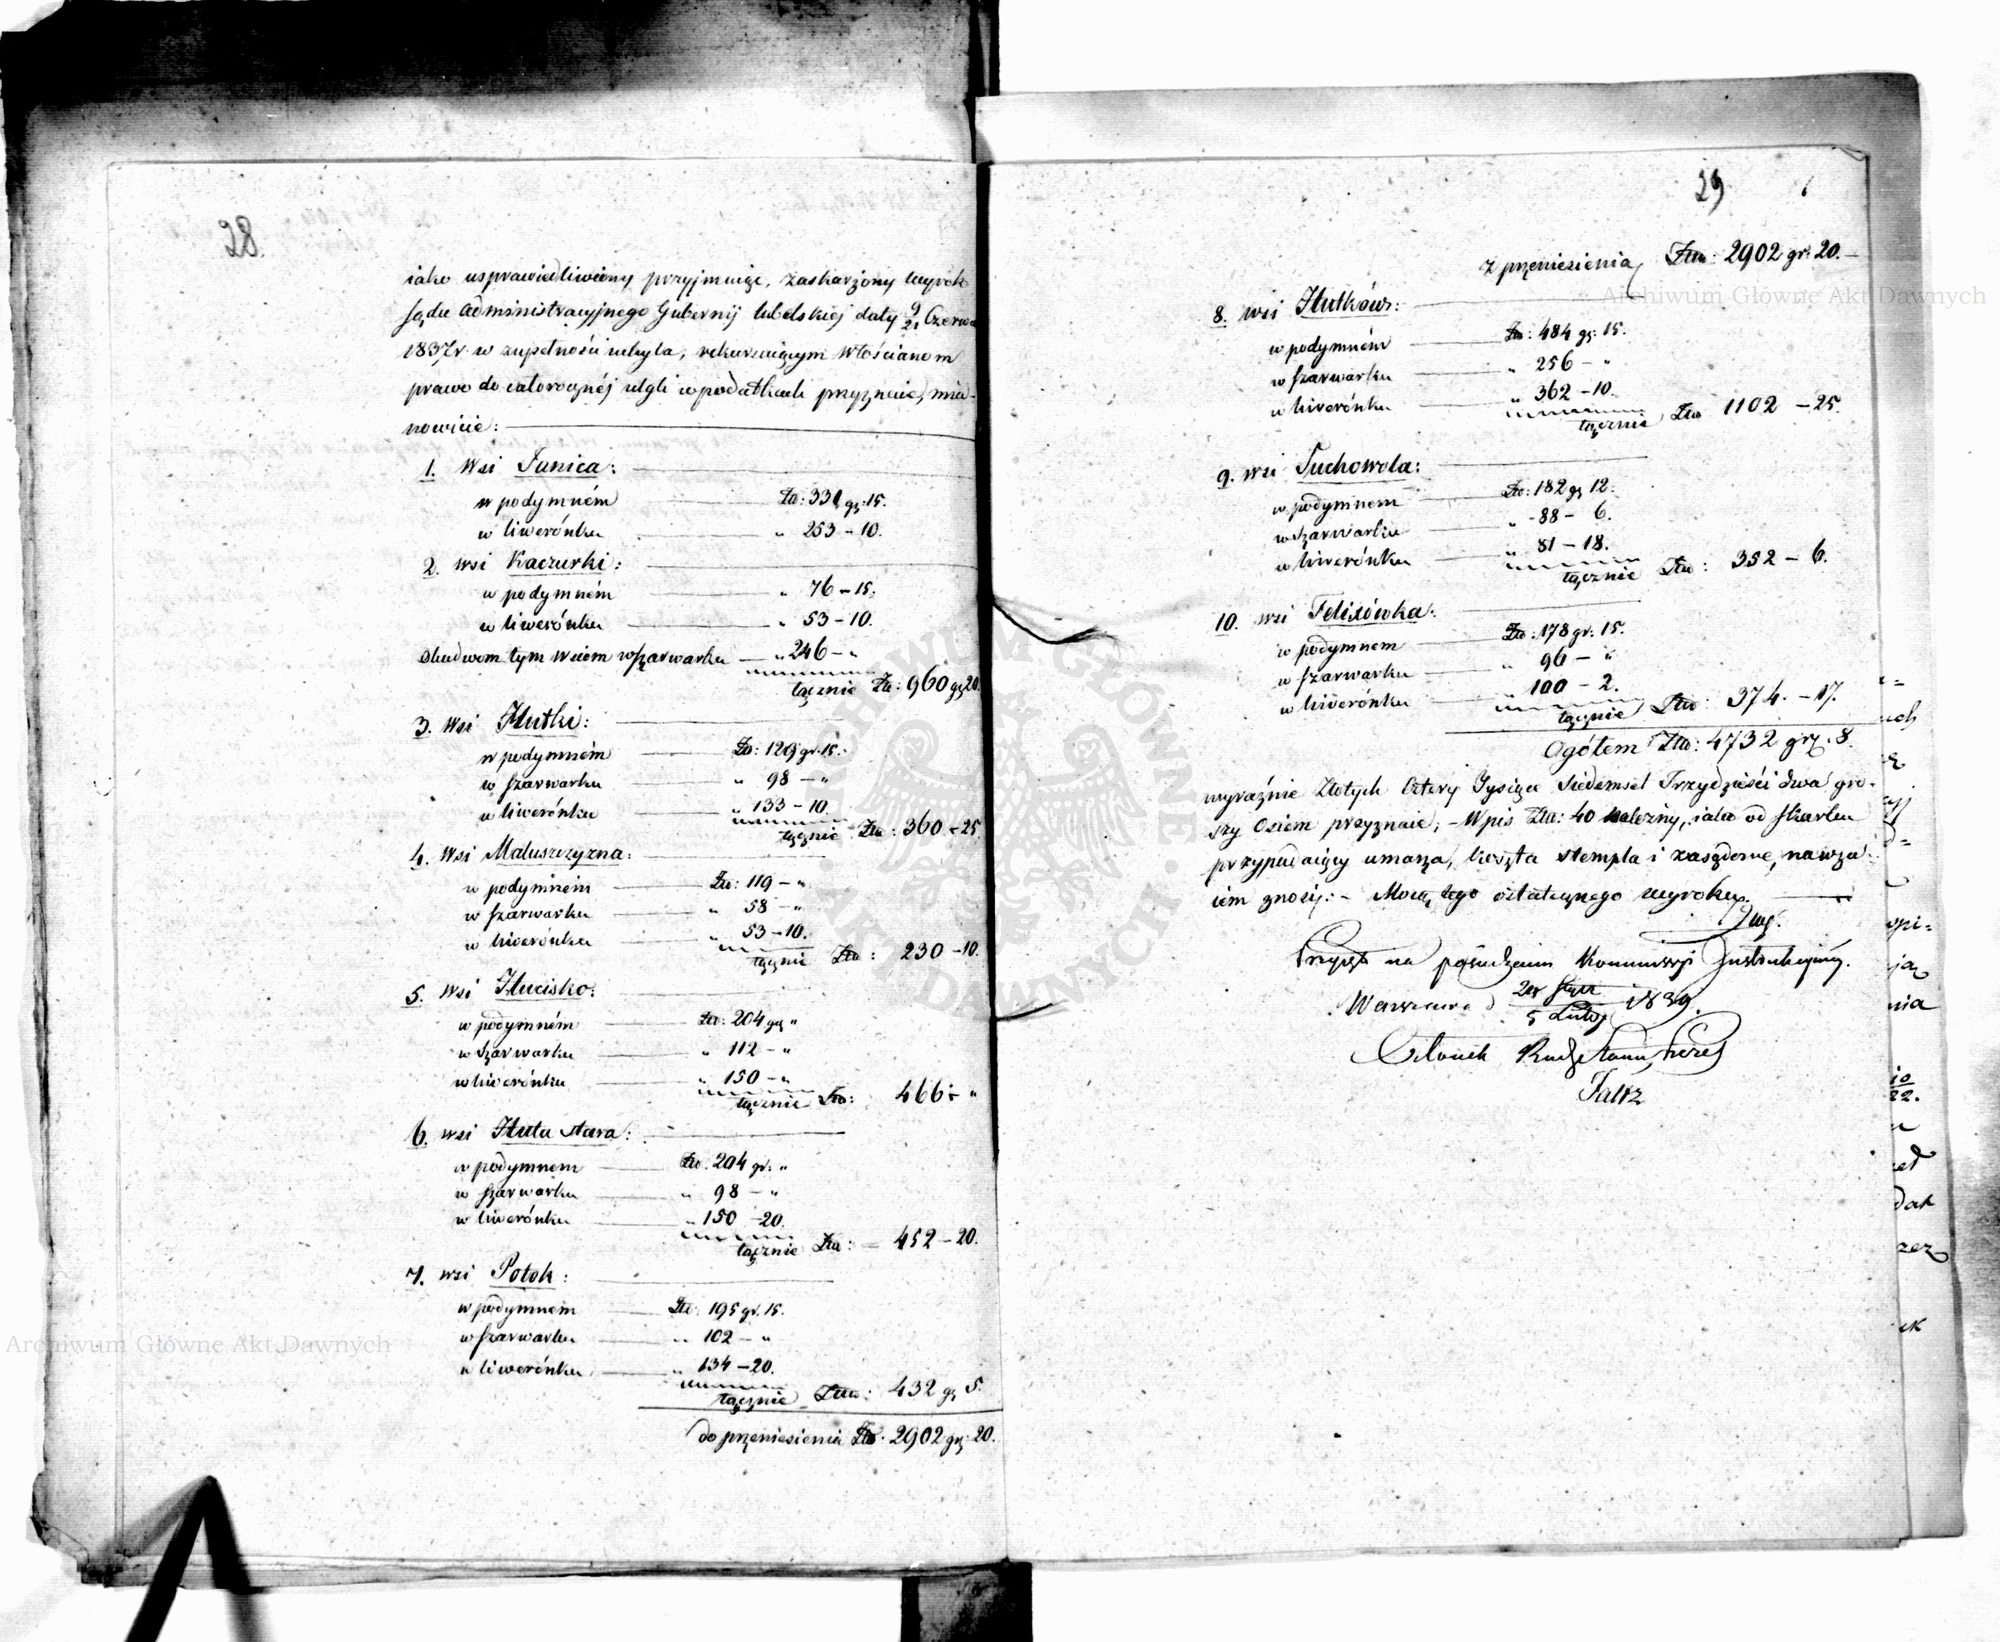 28.
iako usprawiedliwiony przyjmuie, zaskarżony wyrok
Sądu Administracyjnego Gubernij Lubelskiej daty 9/21 Czerwca
1837 r. w zupełności uchyla, rekuruiącym Włościanom
prawo do całorocznéj ulgi w podatkach przyznaie, mia-
nowicie:
1. wsi Janica:
w podymném Złп: 331 gr: 15.
w liwerónku „ 253 – 10.
2. wsi Kaczurki:
w podymném „ 76 – 15.
w liwerónku „ 53 – 10.
Obudwom tym wsiom w Szarwarku „ 246 – „
łącznie Złp: 960 gr 20.
3. wsi Hutki:
w podymném Złp: 129 gr. 15.
w Szarwarku „ 98 – „
w liwerónku „ 133 – 10.
łącznie Złp: 360 – 25.
4. wsi Maluszczyzna:
w podymném Złp: 119 – „
w Szarwarku „ 58 – „
w liwerónku „ 53 – 10.
łącznie Złp: 230 – 10.
5. wsi Hucisko:
w podymném Złp: 204 gr „
w Szarwarku „ 112 – „
w liwerónku „ 150 – „
łącznie Złp: 466 – „
6. wsi Huta stara:
w podymnem Złp. 204 gr. „
w Szarwarku „ 98 – „
w liwerónku „ 150 – 20.
łącznie Złp: 452 – 20.
7. wsi Potok:
w podymnem Złp: 195 gr. 15.
w Szarwarku „ 102 – „
w liwerónku „ 134 – 20.
łącznie Złp: 432 gr 5.
do przeniesienia Złp. 2902 gr: 20.
29
z przeniesienia Złp: 2902 gr: 20.
8. wsi Hutków:
w podymném Złp: 484 gr: 15.
w Szarwarku „ 256 – „
w liwerónku „ 362 – 10.
łącznie Złp 1102 – 25.
9. wsi Suchowola:
w podymnem Złp: 182 gr 12.
w Szarwarku „ 88 – 6.
w liwerónku „ 81 – 18.
łącznie Złp: 352 – 6.
10. wsi Felixówka:
w podymnem Złp: 178 gr: 15.
w Szarwarku „ 96 – „
w liwerónku „ 100 – 2.
łącznie Złp: 374. – 17.
Ogółem Złp: 4732 gr: 8.
wyraźnie Złotych Cztery Tysiące Siedemset Trzydzieści dwa gro-
szy Osiem przyznaie; – Wpis Złp: 40 należny, iako od Skarbu
przypadaiący umarza, koszta stempla i zasądowe, nawza-
iem znosi; – Mocą tego ostatecznego wyroku.
Przyięto na posiedzeniu Kommissyi Instrukcyinéj.
Warszawa d 24 Stycz / 5 Lutego 1839.
Członek Rady Stanu, Prezes
Faltz
Archiwum Główne Akt Dawnych
Archiwum Główne Akt Dawnych
ARCHIWUM GŁÓWNE AKT DAWNYCH